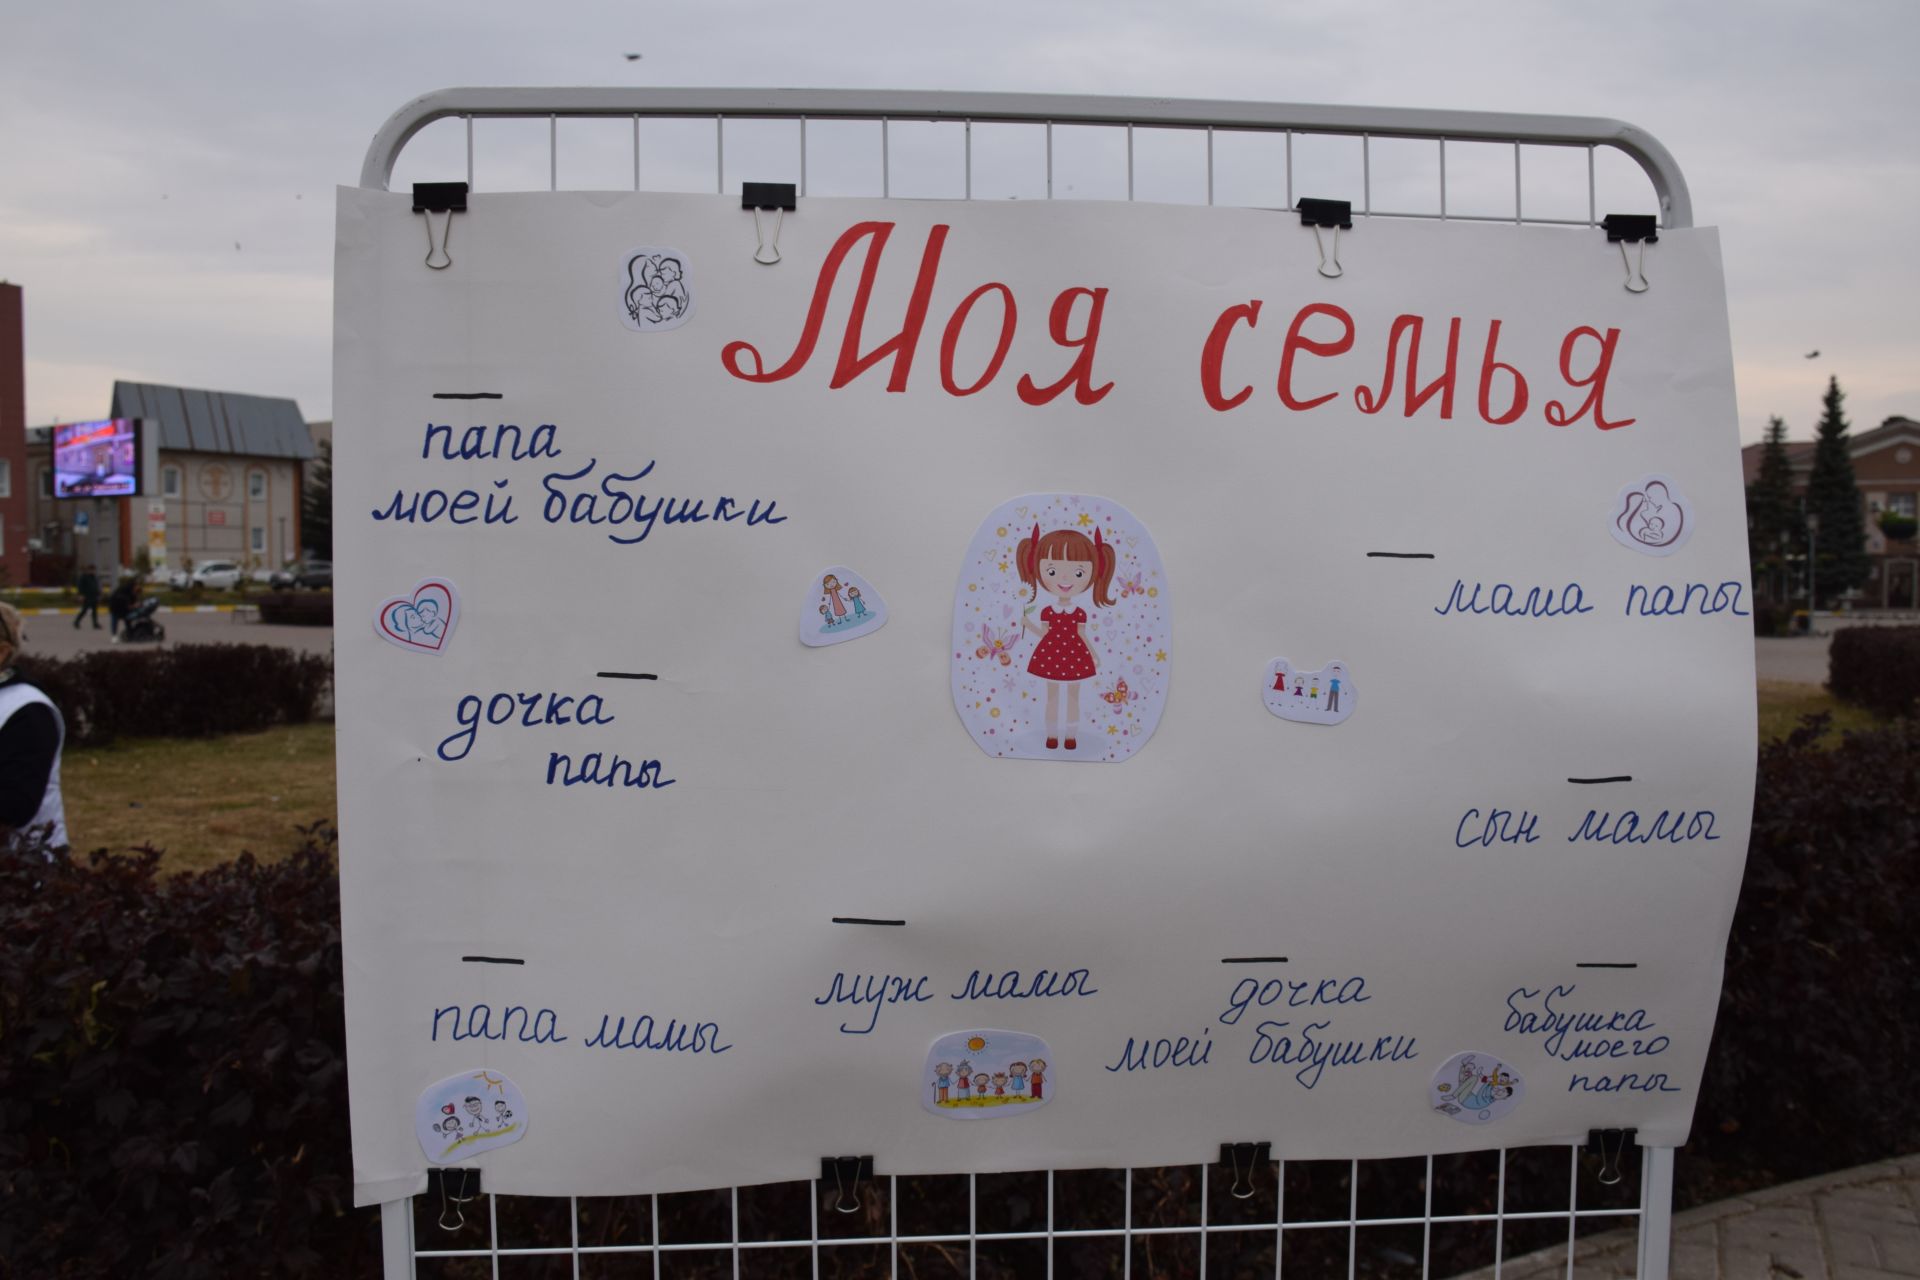 Моя семья
папа
моей бабушки
мама папы
дочка
папы
сын мамы
папа мамы
муж мамы
дочка
моей бабушки
бабушка
моего
папы